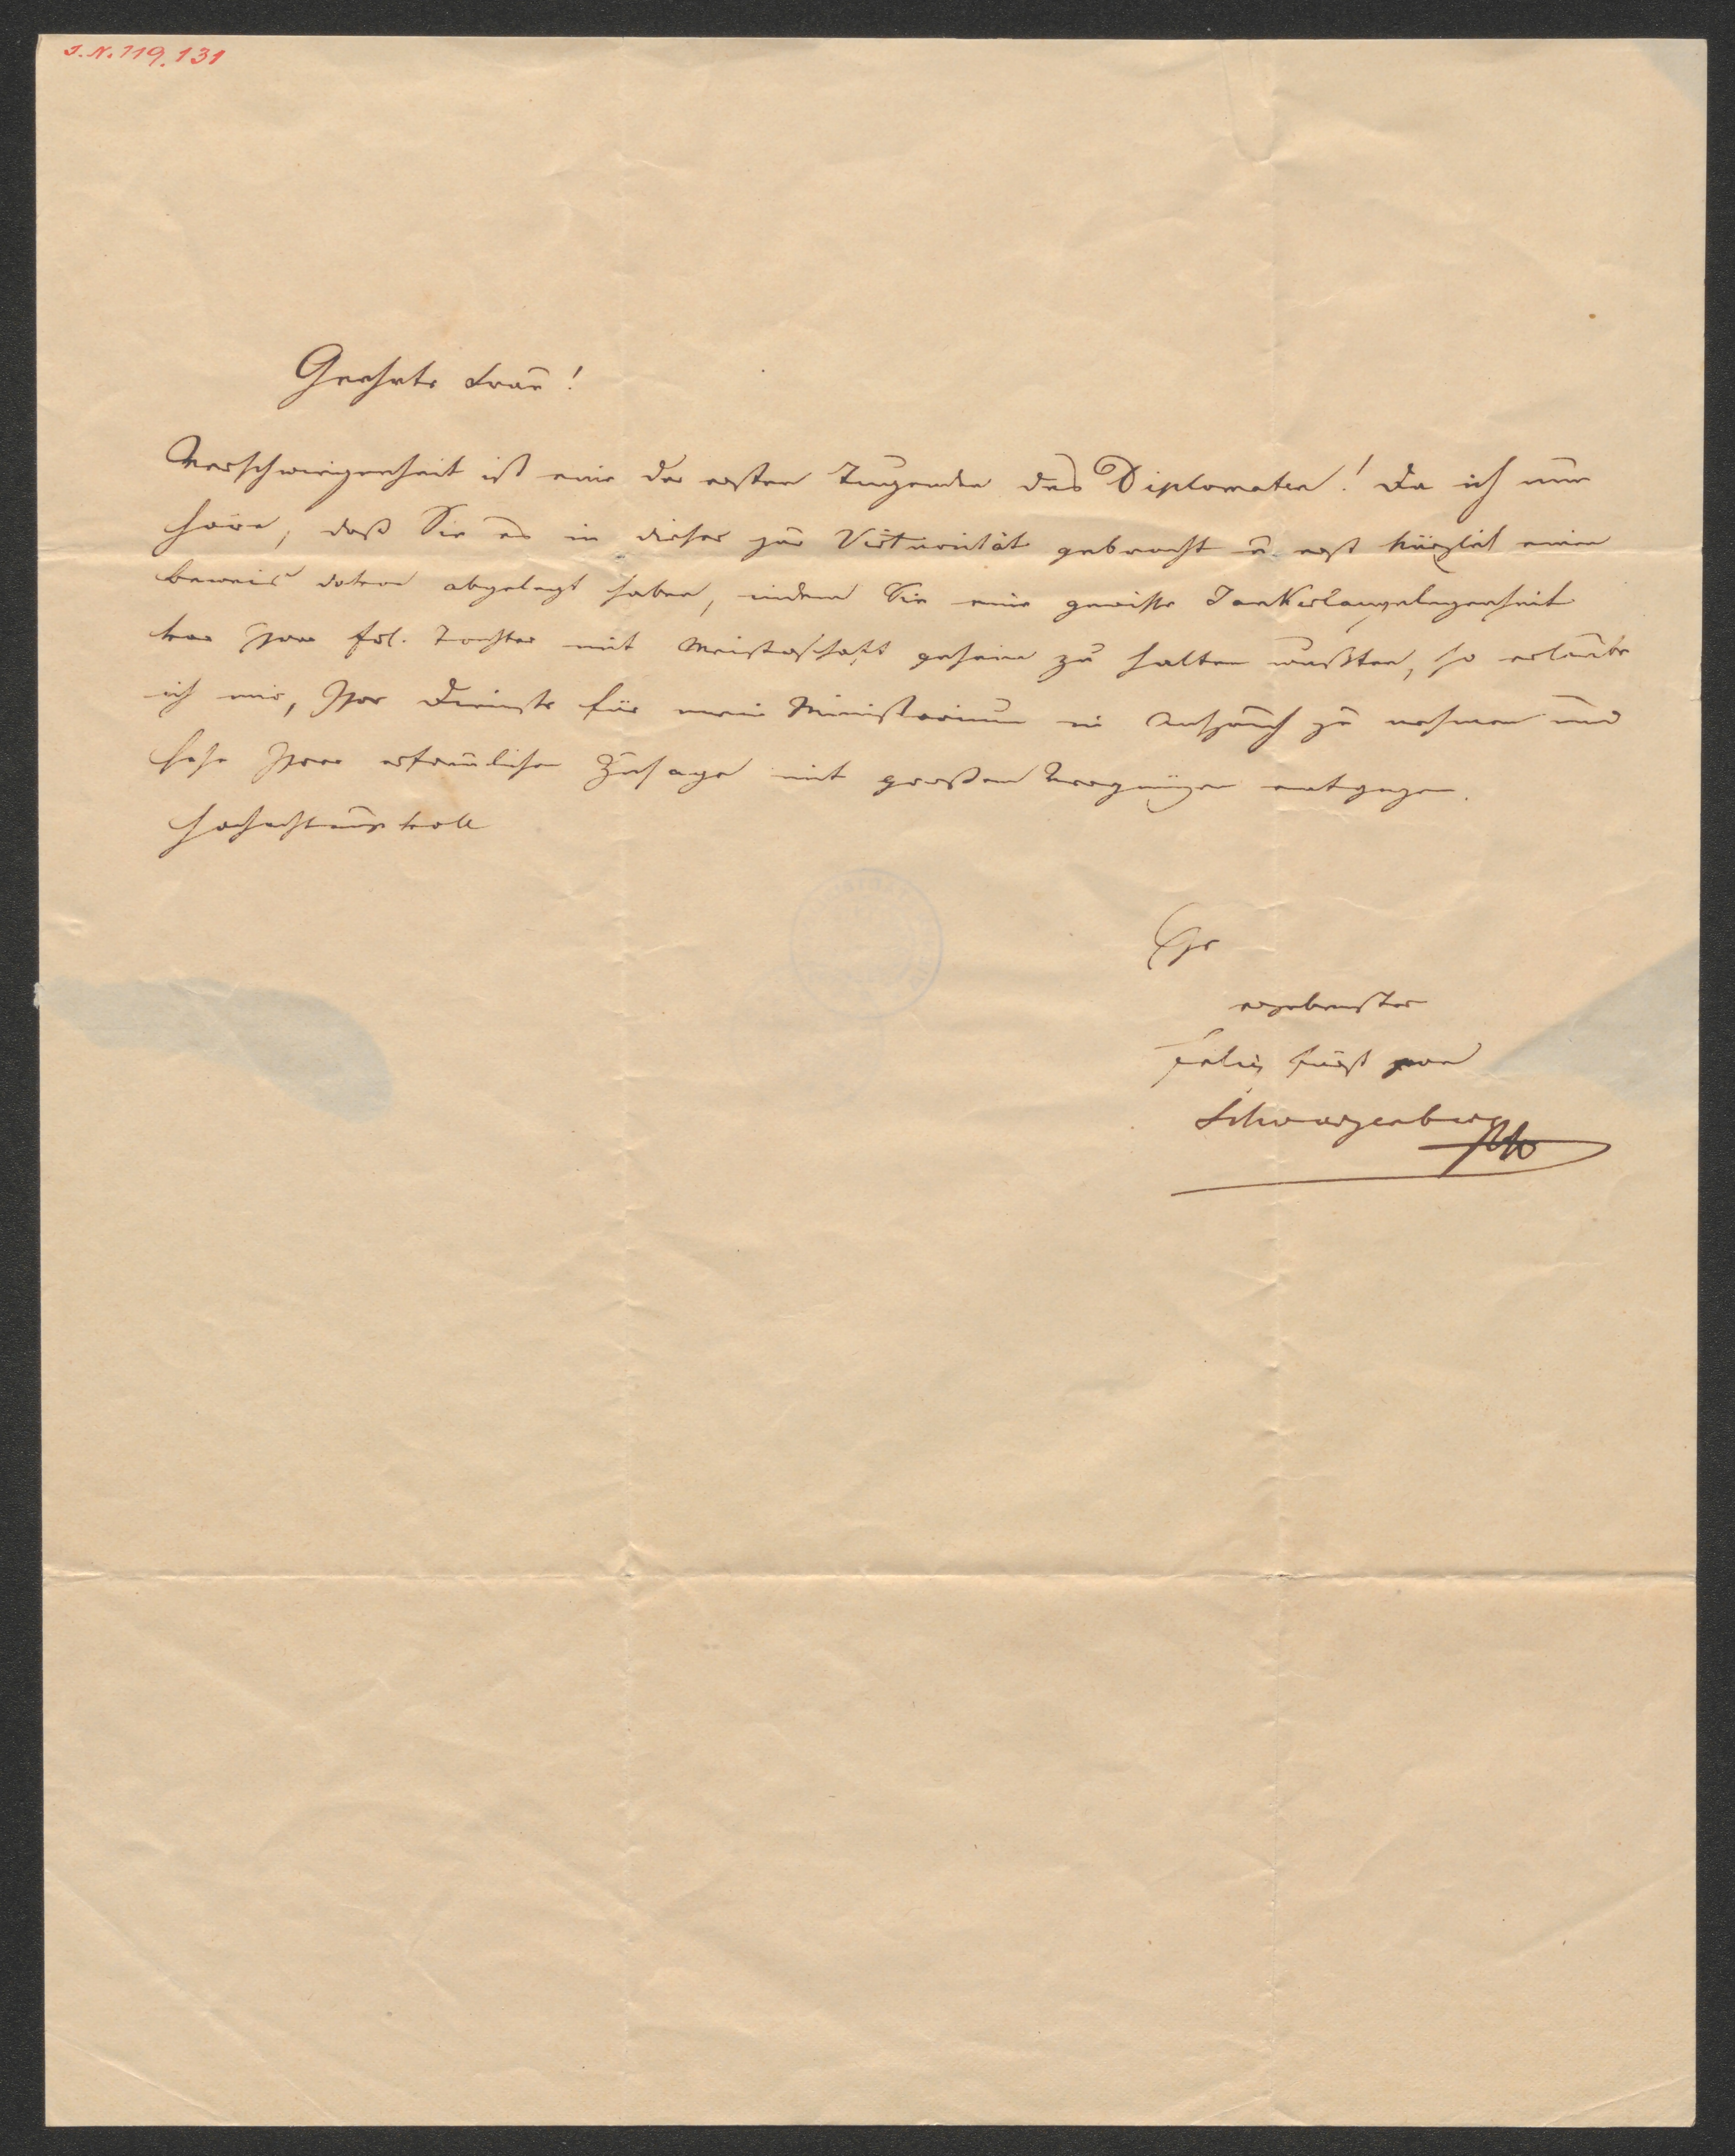 J.N. 119.131
Geehrte Frau!
Verschwiegenheit ist eine der ersten Tugenden des Diplomaten! Da ich nun
höre, daß Sie es in dieser zur Virtuosität gebracht u. erst kürzlich einen
Beweis davon abgelegt haben, indem Sie eine gewisse
vor Ihrer Frl. Tochter mit Meisterschaft geheim zu halten wußten, so erlaube
ich mir, Ihre Dienste für mein Ministerium in Anspruch zu nehmen und
sehe Ihrer erfreulichen Zusage mit großem Vergnügen entgegen.
Hochachtungsvoll
Ihr
ergebenster
Felix Fürst von
Schwarzenberg